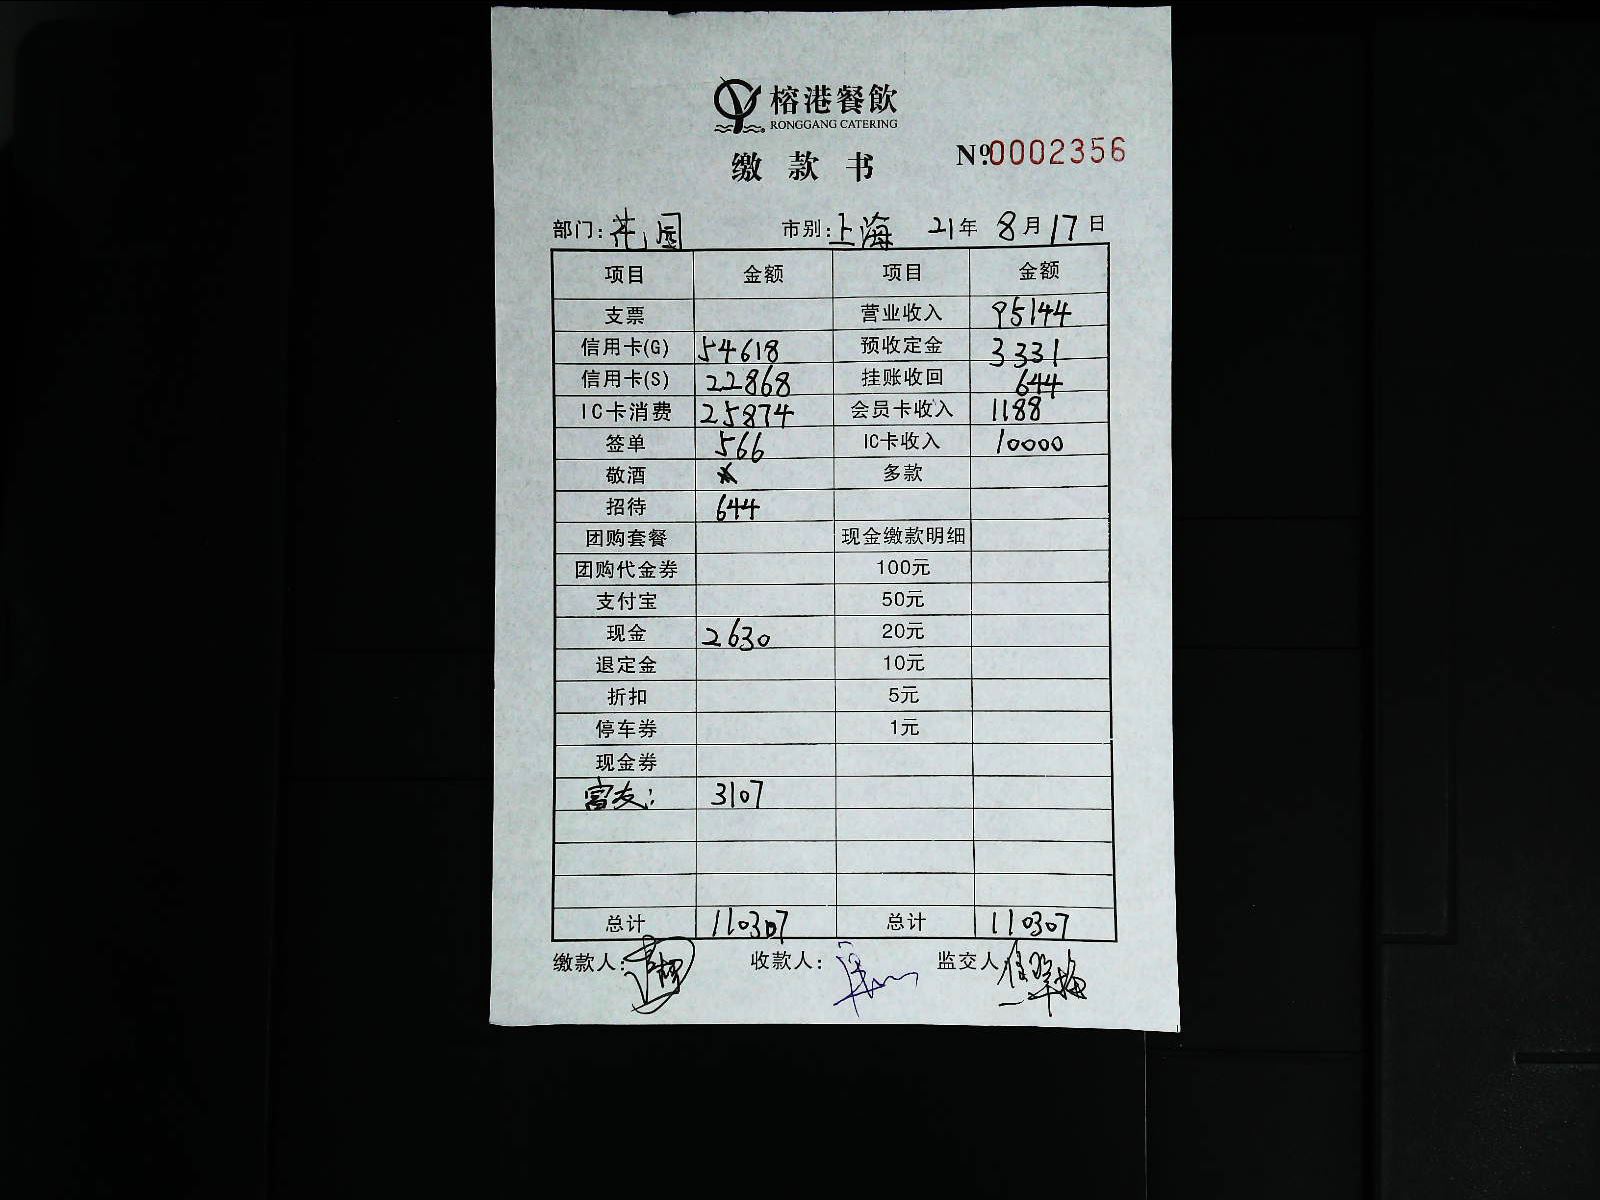 榕港餐飲
RONGGANG CATERING
缴款书 Nº.0002356
部门:花园 市别:上海 21年 8月17日
项目 金额 项目 金额
支票 营业收入 95144
信用卡(G) 54618 预收定金 3331
信用卡(S) 22868 挂账收回 644
IC卡消费 25874 会员卡收入 1188
签单 566 IC卡收入 10000
敬酒 多款
招待 644
团购套餐 现金缴款明细
团购代金券 100元
支付宝 50元
现金 2630 20元
退定金 10元
折扣 5元
停车券 1元
现金券
富友: 3107
总计 110307 总计 110307
缴款人: 收款人: 监交人